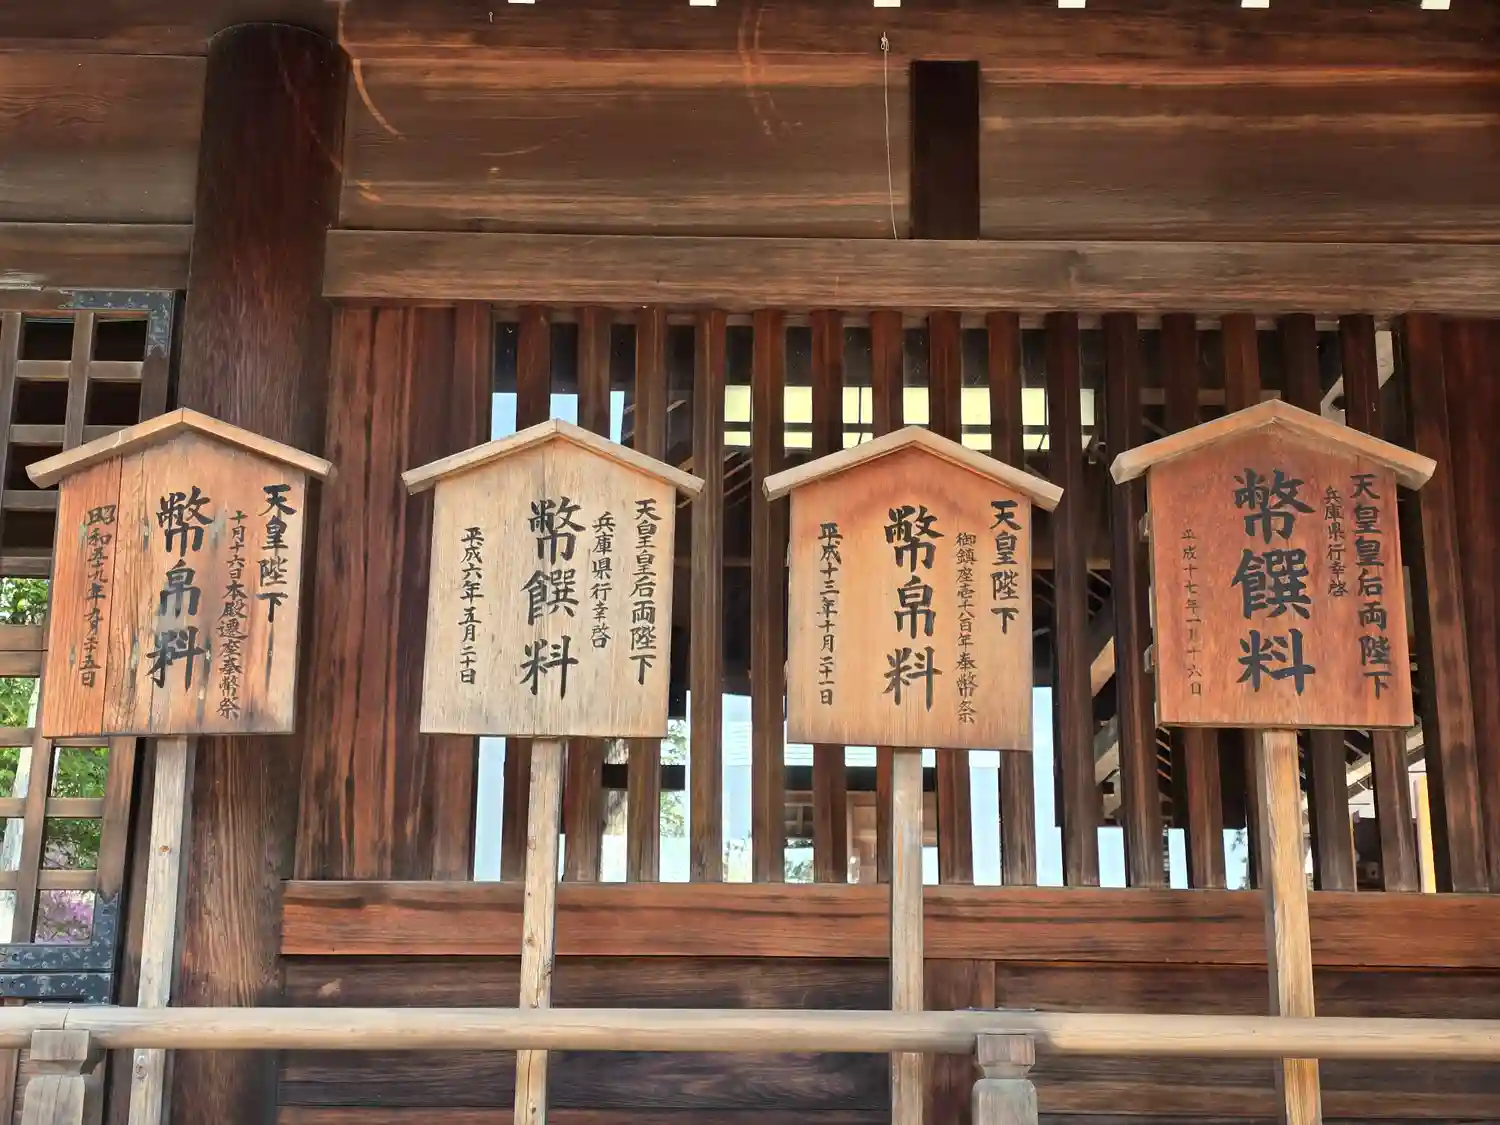 天皇陛下
十月十六日本殿遷座奉幣祭
幣帛料
昭和五十九年十月二十五日
天皇皇后両陛下
兵庫県行幸啓
幣饌料
平成六年五月二十日
天皇陛下
御鎮座壱千八百年奉幣祭
幣帛料
平成十三年十月二十一日
天皇皇后両陛下
兵庫県行幸啓
幣饌料
平成十七年一月十六日